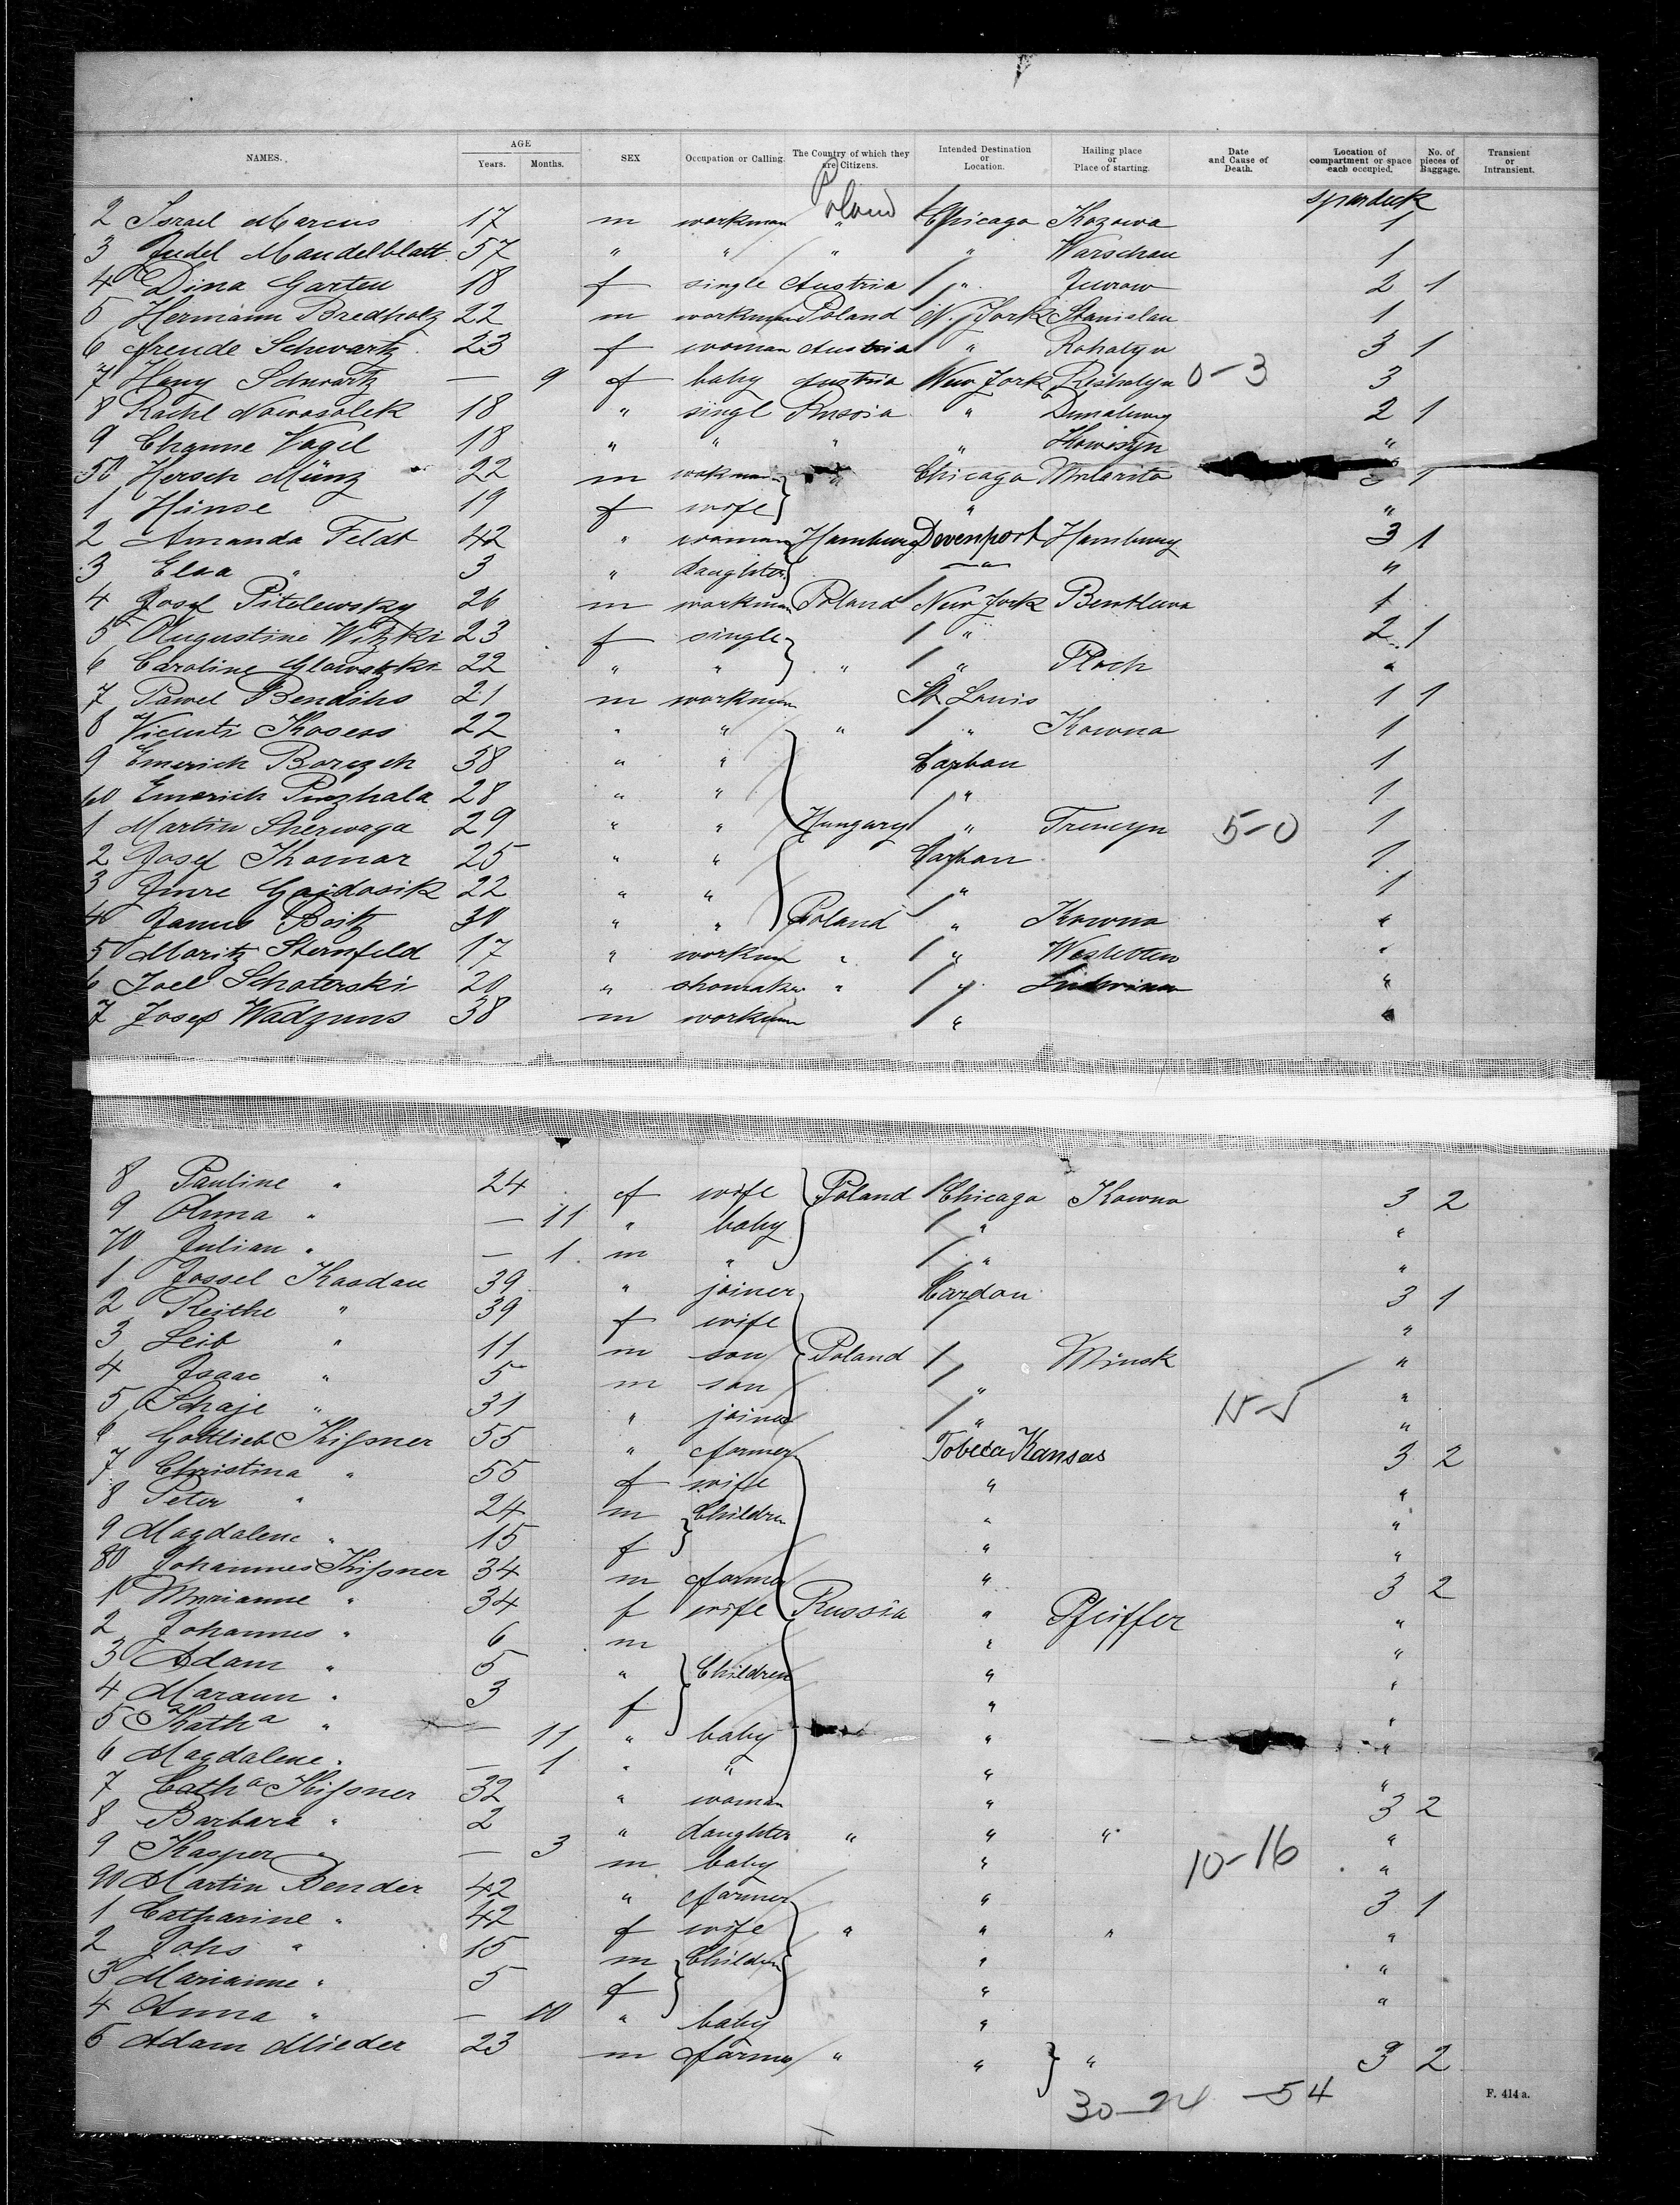 NAMES. AGE Years. Months. SEX Occupation or Calling. The Country of which they are Citizens. Intended Destination or Location. Hailing place or Place of starting. Date and Cause of Death. Location of compartment or space each occupied. No. of pieces of Baggage. Transient or Intransient.
2 Israel Marcus 17 m workman Poland " Chicago Kozowa spardeck 1
3 Judel Mandelblatt 57 " " " " Warschau 1
4 Dina Garten 18 f single Austria " 2 1
5 Hermann Bredholz 22 m workman Poland N. York Stanislau 1
6 Freude Schwartz 23 f woman Austria " Rohatyn 3 1
7 Hany Schwartz — 9 f baby Austria New York 0-3 3
8 Rachl Nowosolek 18 " singl Russia " Dunaburg 2 1
9 Channe Vogel 18 " " " " "
50 Hersch Münz 22 m wokman " Chicago 1
1 Hinse 19 f wife " "
2 Amanda Feldt 42 " woman Hamburg Davenport Hamburg 3 1
3 Elsa " 3 " daughter " "
4 Josef Pitelewsky 26 m workman Poland New York 1
5 Augustine Witzki 23 f single " 2 1
6 Caroline 22 " " " " Plock "
7 Pawel Bendihs 21 m workman St Louis 1 1
8 Vicenti Koseos 22 " " " " Kowna 1
9 Emerich Borezch 38 " " Carbon 1
60 Emerich 28 " " " 1
1 Martin Sherwaga 29 " " Hungary " Trencyn 5-0 1
2 Josef Komar 25 " " Carbon 1
3 Imre Gajdosik 22 " " " 1
4 Janus Boitz 30 " " Poland " Kowna "
5 Moritz Sternfeld 17 " workman " " "
6 Joel Schaterski 20 " shomaker " " "
7 Josep Wadzuns 38 m workman " "
8 Pauline " 24 f wife Poland Chicago Kowna 3 2
9 Anna " — 11 " baby " "
70 Julian " — 1 m " " "
1 Jossel Kasdan 39 " joiner 3 1
2 Reishe " 39 f wife "
3 Leib " 11 m son Poland " Minsk "
4 Isaac " 5 m son " "
5 Schaje " 31 " joiner " 15-5 "
6 Gottlieb Kissner 55 " farmer Tobeca Kansas 3 2
7 Christina " 55 f wife " "
8 Peter " 24 m Children " "
9 Magdalene " 15 f " "
80 Johannes Kissner 34 m farmer " 3 2
1 Marianne " 34 f wife Russia " Pfeiffer "
2 Johannes " 6 m " "
3 Adam " 5 " Children " "
4 " 3 f " "
5 Katha " — 11 " baby " "
6 Magdalene " — 1 " " " "
7 Catha Kissner 32 " woman " 3 2
8 Barbara " 2 " daughter " " " "
9 Kasper " — 3 m baby " 10-16 "
90 Martin Bender 42 " farmer " 3 1
1 Catharine " 42 f wife " " " "
2 Johs " 15 m Children " "
3 Marianne " 5 f " "
4 Anna " — 10 " baby "
5 Adam Mieder 23 m farmer " " " 3 2
30-24 -54
F. 414 a.